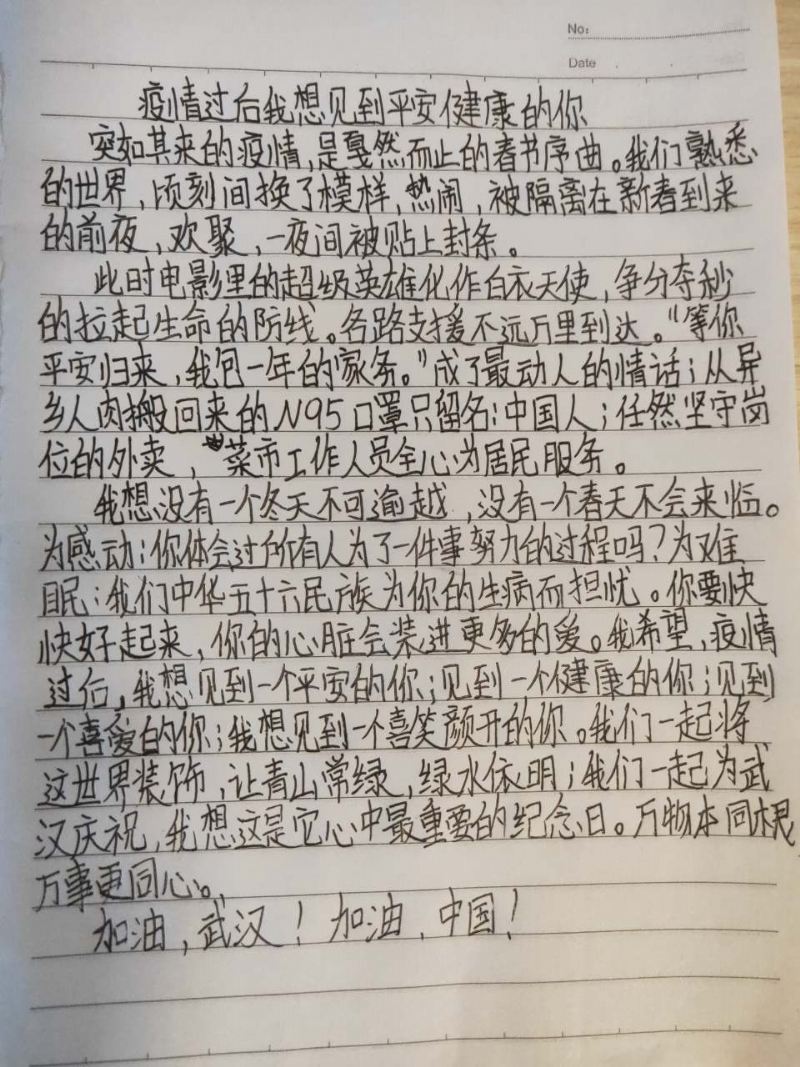 No:
Date
疫情过后我想见到平安健康的你
突如其来的疫情,是戛然而止的春节序曲。我们熟悉
的世界,顷刻间换了模样,热闹,被隔离在新春到来
的前夜,欢聚,一夜间被贴上封条。
此时电影里的超级英雄化作白衣天使,争分夺秒
的拉起生命的防线。各路支援不远万里到达。“等你
平安归来,我包一年的家务。”成了最动人的情话;从异
乡人肉搬回来的N95口罩只留名:中国人;任然坚守岗
位的外卖,菜市工作人员全心为居民服务。
我想没有一个冬天不可逾越,没有一个春天不会来临。
为感动:你体会过所有人为了一件事努力的过程吗?为难
眠:我们中华五十六民族为你的生病而担忧。你要快
快好起来,你的心脏会装进更多的爱。我希望,疫情
过后,我想见到一个平安的你;见到一个健康的你;见到
一个喜爱的你;我想见到一个喜笑颜开的你。我们一起将
这世界装饰,让青山常绿,绿水依明;我们一起为武
汉庆祝,我想这是它心中最重要的纪念日。万物本同根
万事更同心。
加油,武汉!加油,中国!